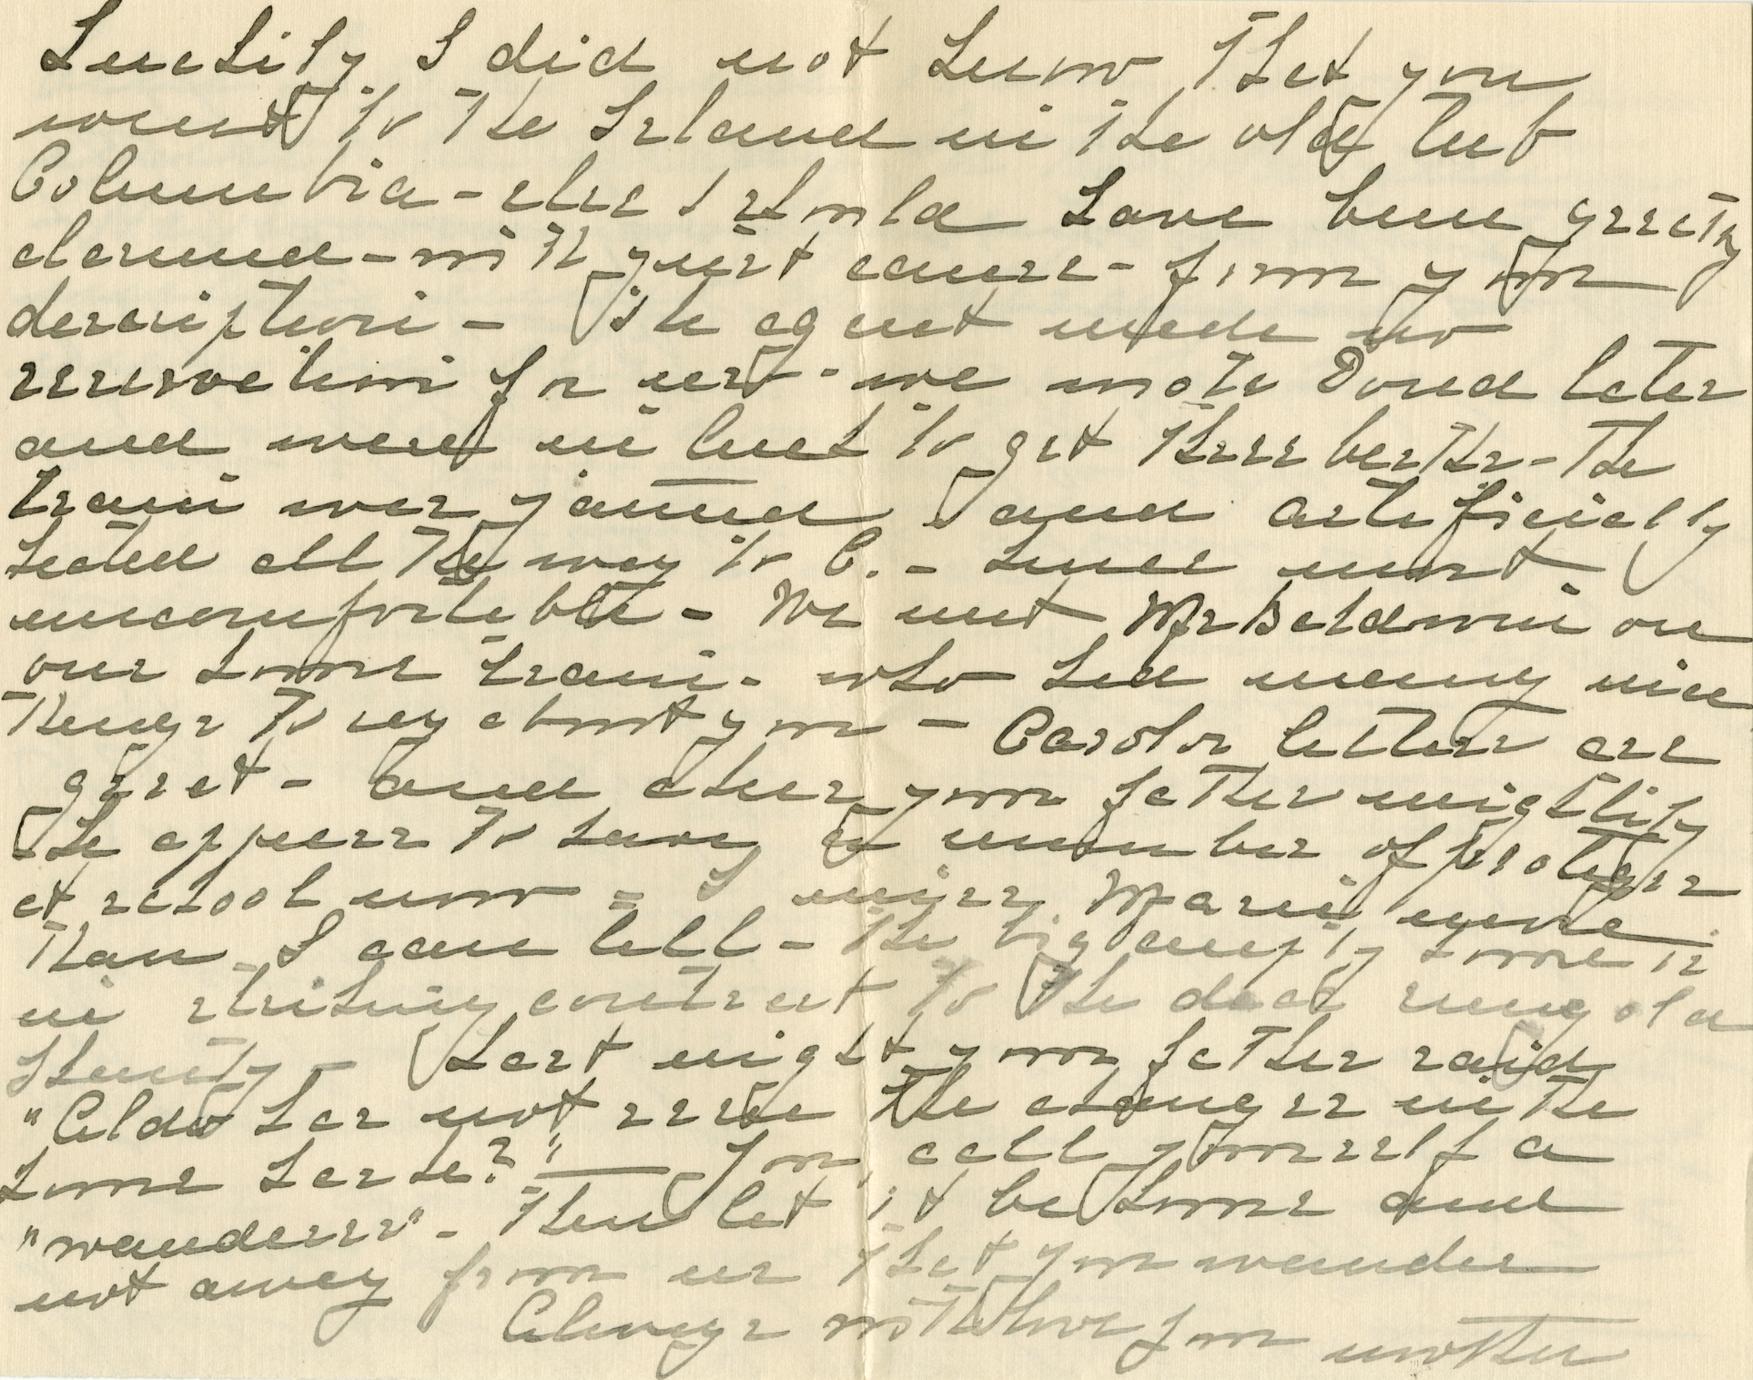 Luckily I did not know that you
went to the Island in the old tub
Columbia - else I should have been greatly
alarmed - with just cause - from your
description - The agent made no
reservation for us - we wrote Dond later
and were in luck to get three berths - the
train was jammed and artificially
heated all the way to C. - hence most
uncomfortable - We met Mr Baldwin on
our home train - who had many nice
things to say about you - Carolos letters are
great - and cheer your father mightily
She appears to have a number of proteges
at school now - I miss Marie more
than I can tell - The big empty house is
in striking contrast to the dear rung old
Shanty - Last night your father said
"Aldo has not seen the changes in the
home has he?" - You call yourself a
"wanderer" - Then let it be home and
not away from us that you wander
Always with love your mother